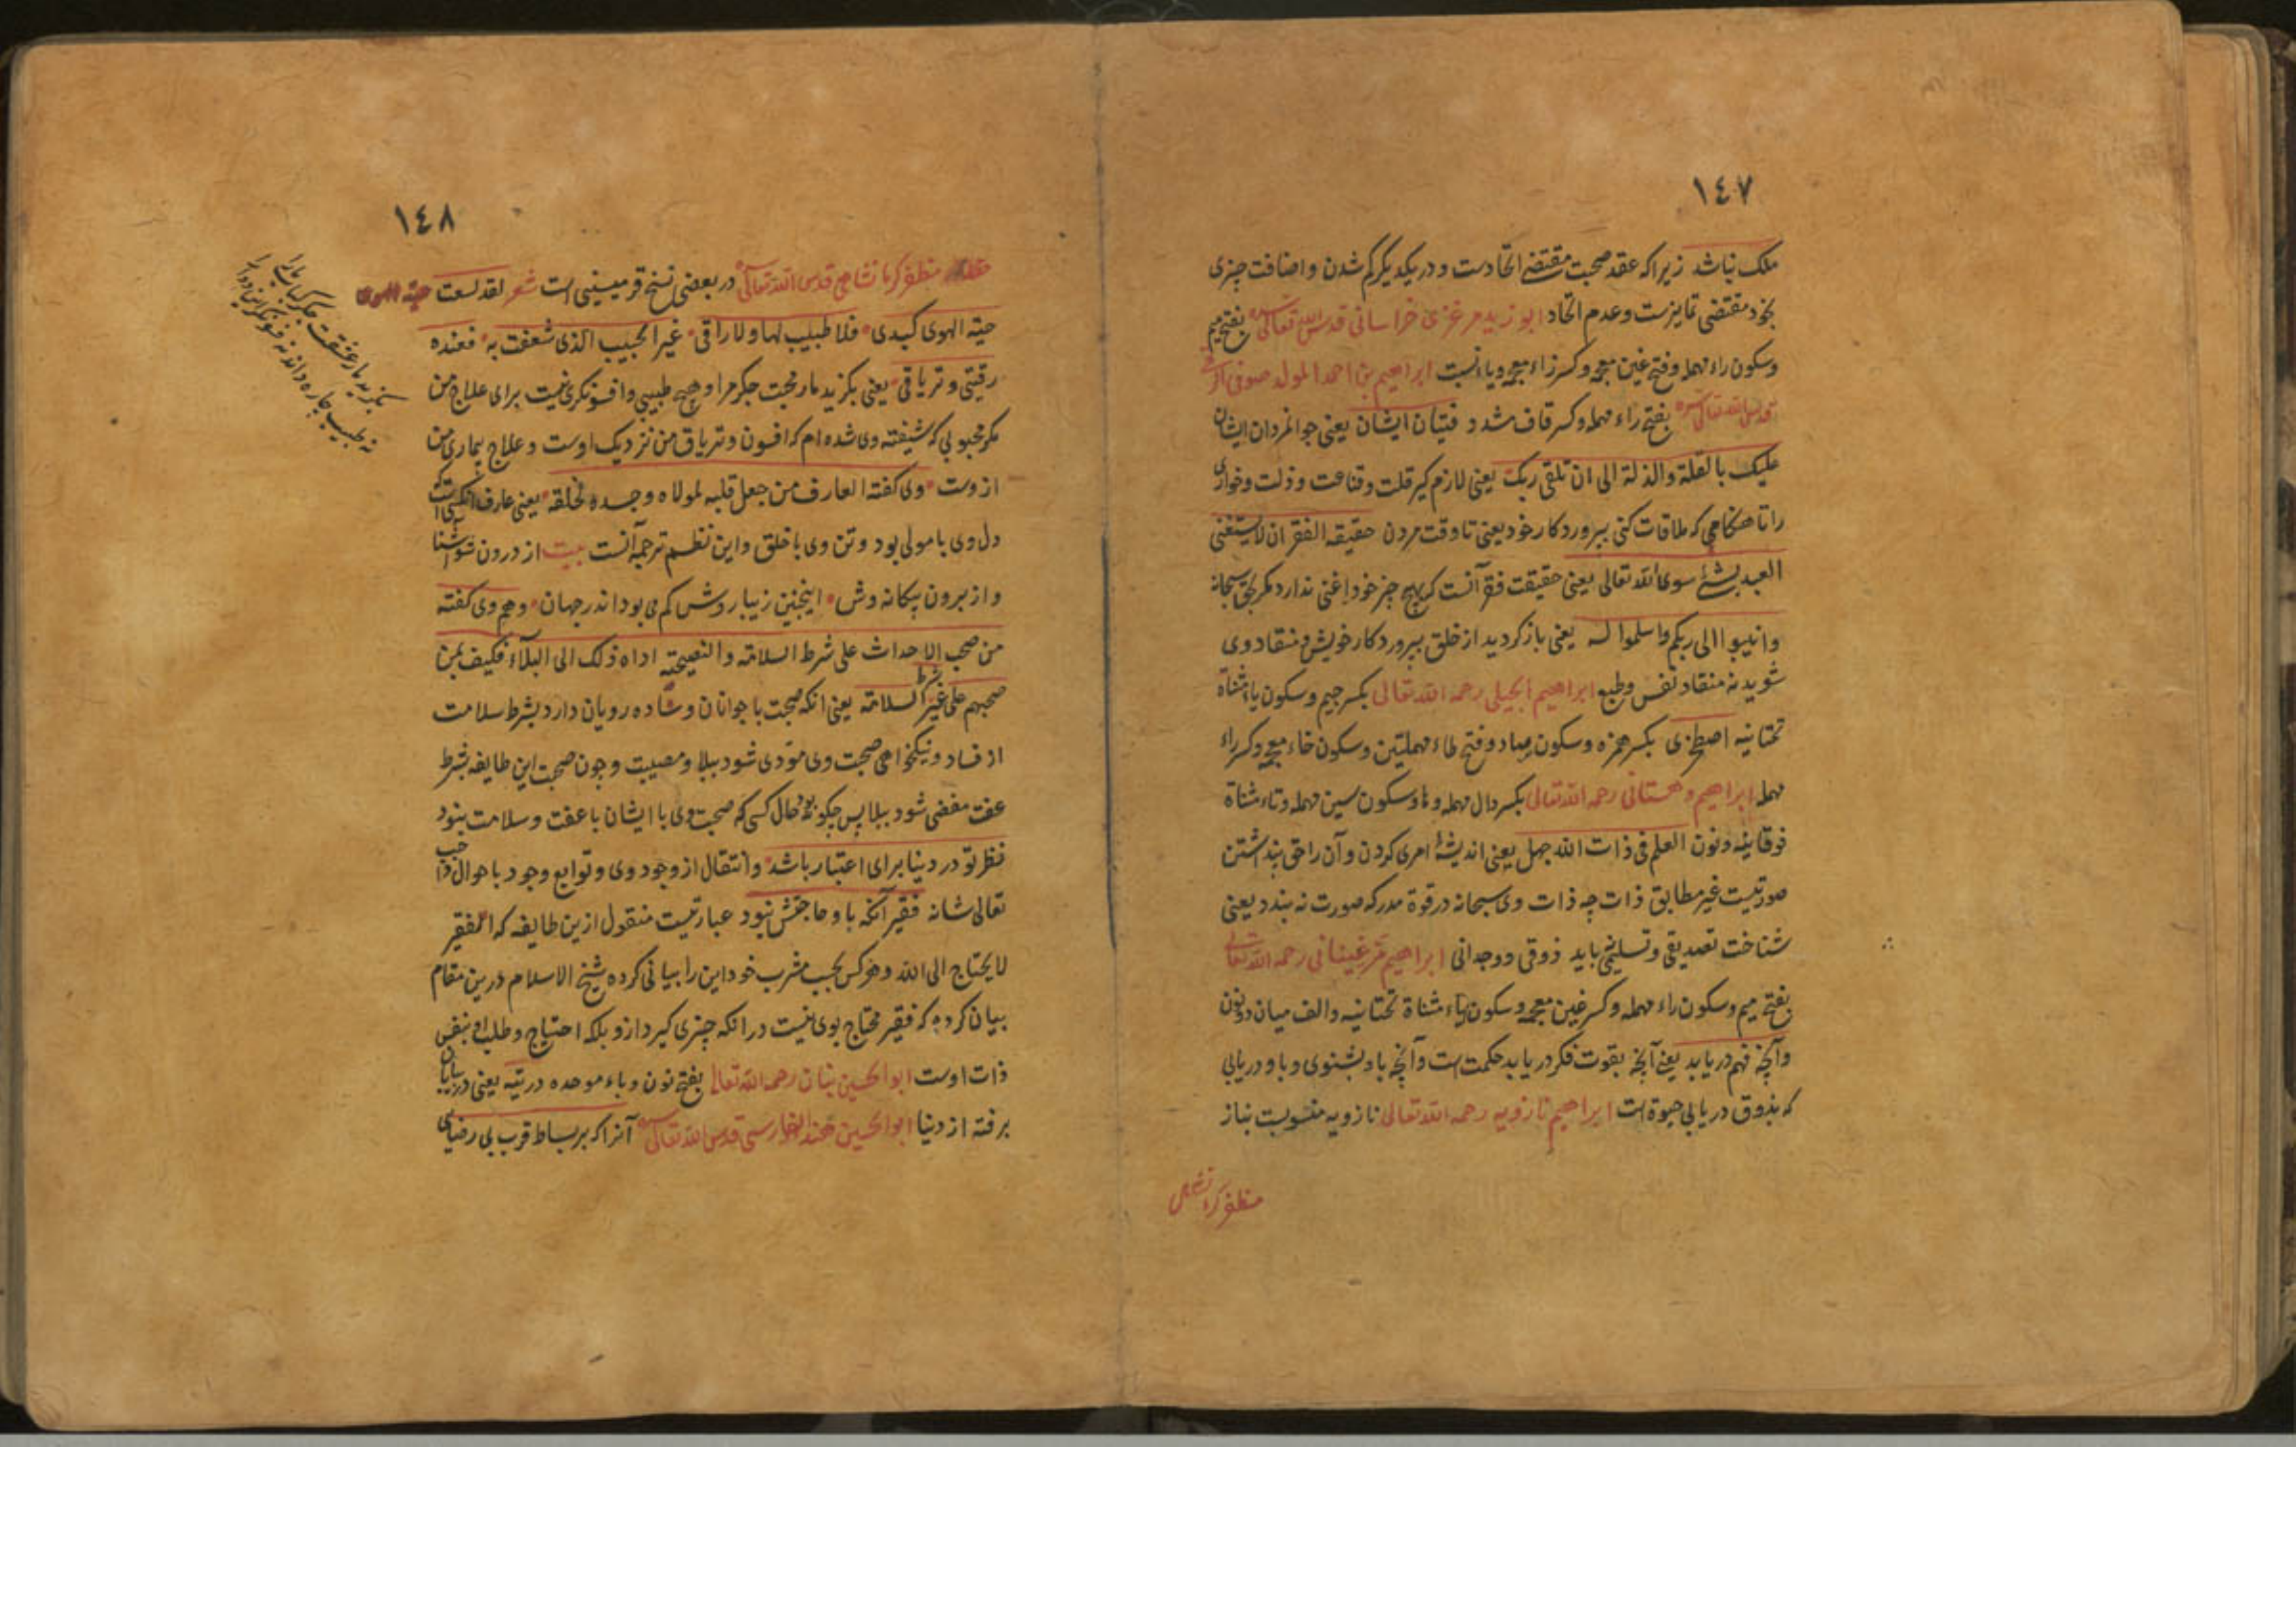 ١٤٧
ملک نباشد زیراکه عقد صحبت مقتضی اتحادست و در یکدیگر کم شدن و اضافت چیزی
بخود مقتضی تمایزست و عدم اتحاد ابو زید مرغزی خراسانی قدس الله تعالی سره بفتح میم
و سکون راء مهمله و فتح غین معجمه و کسر زاء معجمه و یاء نسبت ابراهیم بن احمد المولد صوفی الرقی
قدس الله تعالی سره بفتح راء مهمله و کسر قاف مشدد فتیان ایشان یعنی جوانمردان ایشان
علیک بالقلة والذلة الی ان تلقی ربک یعنی لازم کیر قلت و قناعت و ذلت و خواری
را تا هنکامی که ملاقات کنی بپروردکار خود یعنی تا وقت مردن حقیقه الفقر ان لا یستغنی
العبد بشئ سوی الله تعالی یعنی حقیقت فقر آنست که بهیچ چیز خود را غنی ندارد مکر بحق سبحانه
وانیبوا الی ربکم واسلموا له یعنی باز کردید از خلق بپروردکار خویش و منقاد وی
شوید نه منقاد نفس و طبع ابراهیم الجیلی رحمه الله تعالی بکسر جیم و سکون یاء مثناة
تحتانیه اصطخری بکسر همزه و سکون صاد و فتح طاء مهملتین و سکون خاء معجمه و کسر راء
مهمله ابراهیم دهستانی رحمه الله تعالی بکسر دال مهمله و ها و سکون سین مهمله و تاء مثناة
فوقانیه و نون العلم فی ذات الله جهل یعنی اندیشهٔ امری کردن و آن را حق پنداشتن
صورتیست غیر مطابق ذات چه ذات وی سبحانه در قوة مدرکه صورت نه بندد یعنی
شناخت تصدیقی و تسلیمی باید ذوقی و وجدانی ابراهیم مرغینانی رحمه الله تعالی
بفتح میم و سکون راء مهمله و کسر غین معجمه و سکون یاء مثناة تحتانیه و الف میان دو نون
و آنچه فهم دریابد یعنی آنچه بقوت فکر دریابد حکمت است و آنچه باو بشنوی و باو دریابی
که بذوق دریابی حیوة است ابراهیم نازویه رحمه الله تعالی نازویه منسوبست بناز
مظفر کرمانشاهی
١٤٨
مظفر کرمانشاهی قدس الله تعالی سره در بعضی نسخ قرمیسینی است شعر لقد لسعت
حیة الهوی کبدی فلا طبیب لها ولا راقی غیر الحبیب الذی شغفت به فعنده
رقیتی و تریاقی یعنی بکزید مار محبت جکر مرا و هیچ طبیبی و افسونکری نیست برای علاج من
مکر محبوبی که شیفته وی شده ام که افسون و تریاق من نزدیک اوست و علاج بیماری من
از وست وی کفته العارف من جعل قلبه لمولاه وجسده لخلقه یعنی عارف آنکسی است که
دل وی با مولی بود و تن وی با خلق و این نظم ترجمه آنست بیت از درون شو آشنا
و از برون بیکانه وش اینچنین زیبا روش کم می بود اندر جهان و هم وی کفته
من صحب الاحداث علی شرط السلامة والنصیحة اداه ذلک الی البلاء فکیف بمن
صحبهم علی غیر شرط السلامة یعنی انکه صحبت با جوانان و ساده رویان دارد بشرط سلامت
از فساد و نیکخواهی صحبت وی مؤدی شود ببلا و مصیبت و چون صحبت این طایفه بشرط
عفت مفضی شود ببلا پس چکونه بود حال کسی که صحبت وی با ایشان با عفت و سلامت نبود
نظر تو در دنیا برای اعتبار باشد و انتقال از وجود وی و توابع وجود باحوال واجب
تعالی شانه فقیر آنکه باو حاجتش نبود عبارتیست منقول ازین طایفه که الفقیر
لا یحتاج الی الله و هر کس بحسب مشرب خود این را بیانی کرده شیخ الاسلام درین مقام
بیان کرده که فقیر محتاج بوی نیست در آنکه چیزی کیرد ازو بلکه احتیاج و طلب او بنفس
ذات اوست ابو الحسین بنان رحمه الله تعالی بفتح نون و باء موحده در تیه یعنی در بیابان
برفته از دنیا ابو الحسین هند الفارسی قدس الله تعالی سره آنرا که بر بساط قرب بی رضای
بکزید مار عشقت جکر کباب ما را
نه طبیب چاره داند نه فسونکر این دوا را